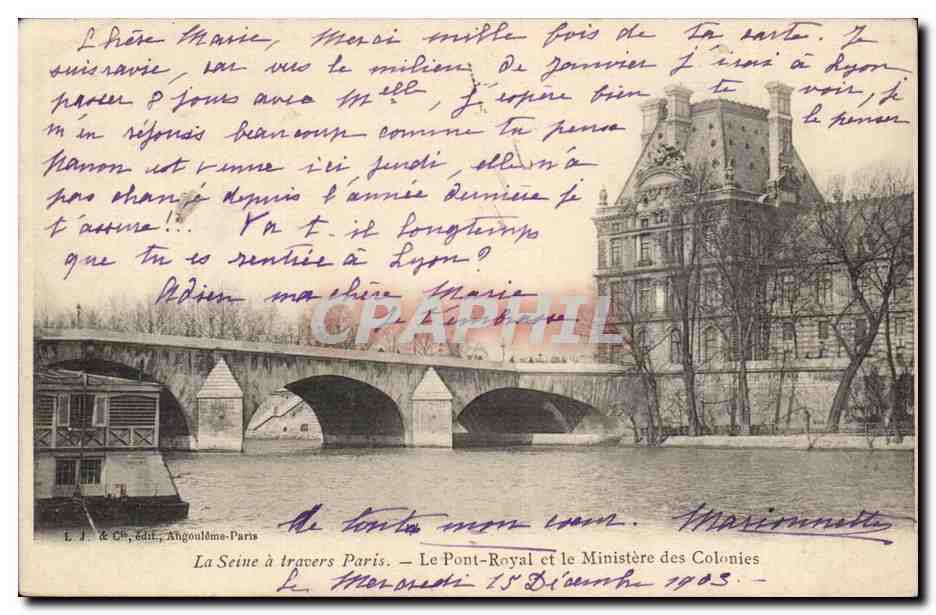 Chère Marie, Merci mille fois de ta carte. Je
suis ravie, car vers le milieu de Janvier j'irai à Lyon
passer 8 jours avec Melle, j'espère bien te voir, je
m'en réjouis beaucoup comme tu penses le penser
Manon est venue ici, jeudi, elle n'a
pas changé depuis l'année dernière je
t'assure!!. Va t-il longtemps
que tu es rentrée à Lyon?
Adieu ma chère Marie
Je t'embrasse
CPAPHIL
de toute mon cœur. Marionnette
L. J. & Cie, édit., Angoulême-Paris
La Seine à travers Paris. — Le Pont-Royal et le Ministère des Colonies
Le Mercredi 15 Décembre 1903